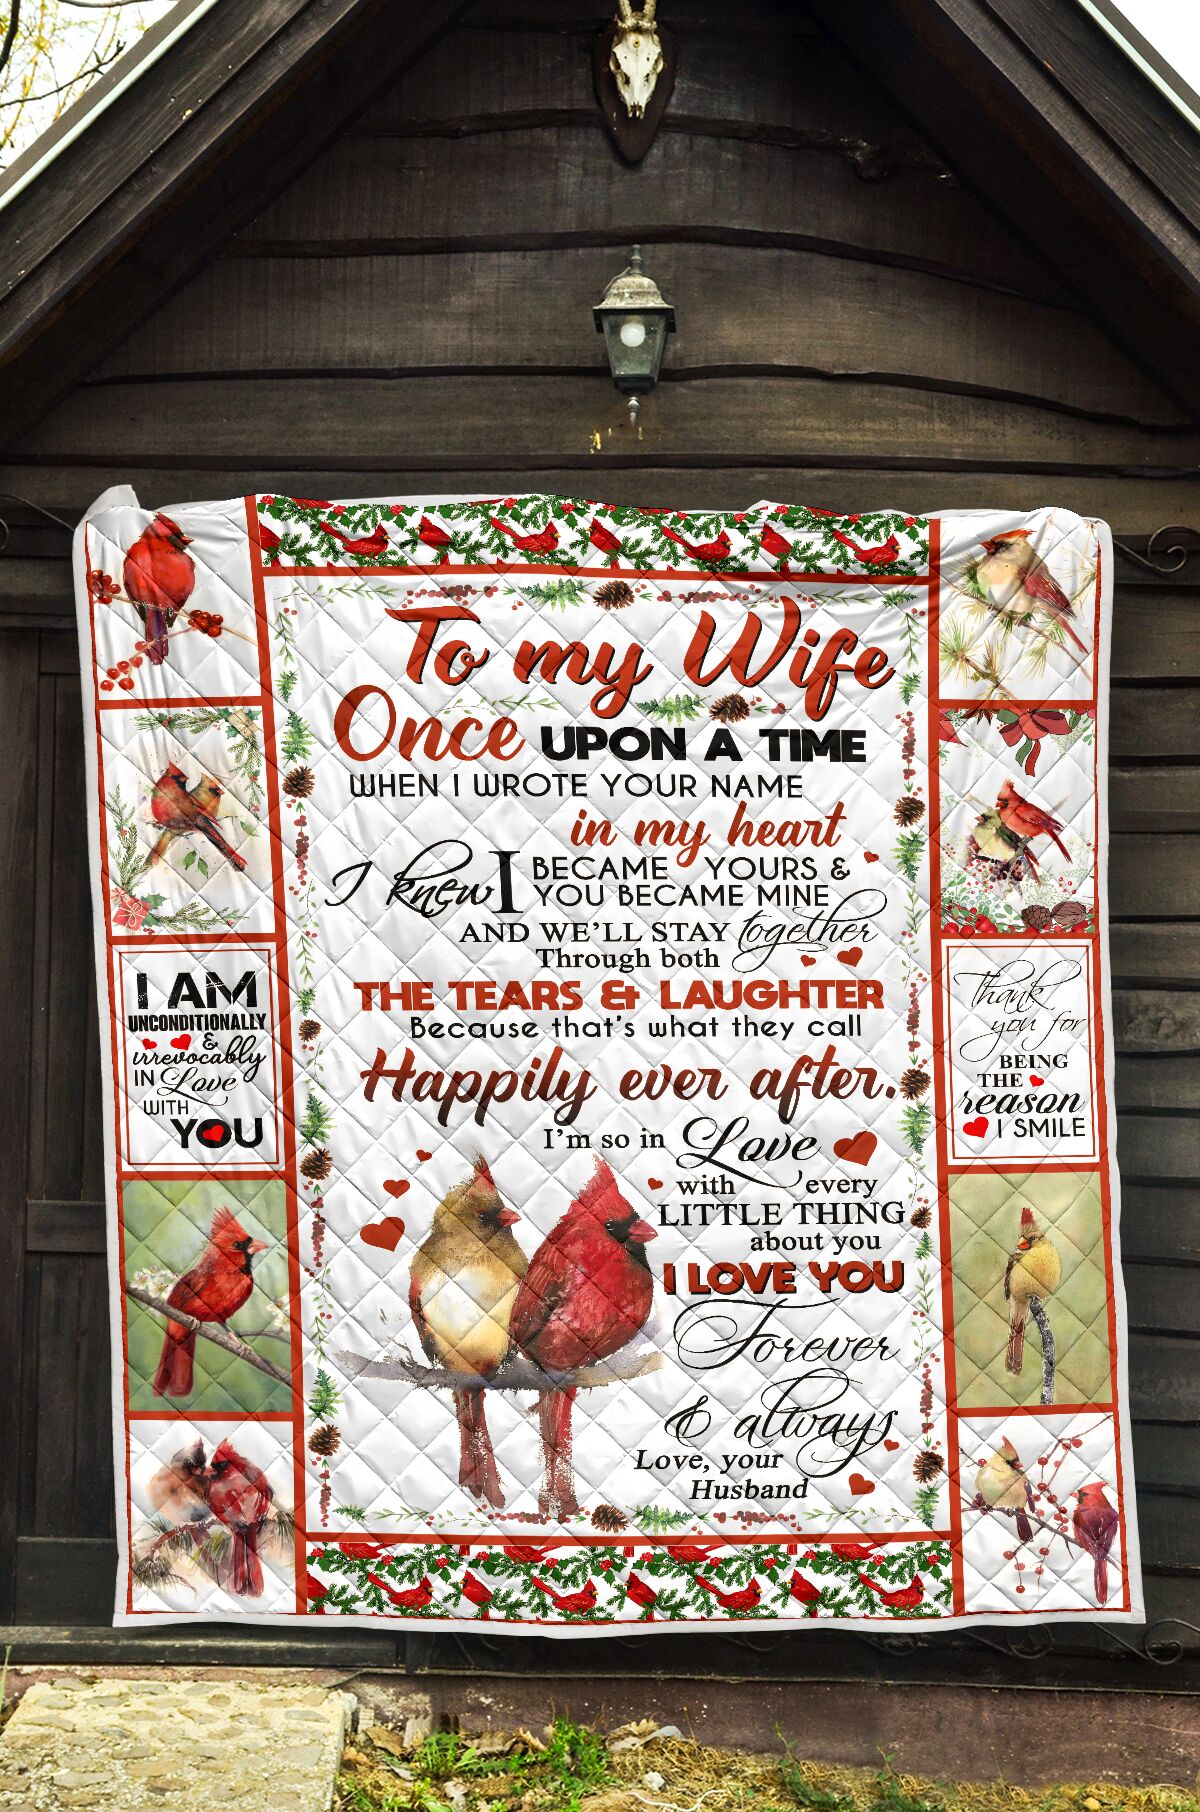 To my Wife
Once UPON A TIME
WHEN I WROTE YOUR NAME
in my heart
I knew I BECAME YOURS &
YOU BECAME MINE
AND WE'LL STAY together
Through both
THE TEARS & LAUGHTER
Because that's what they call
Happily ever after.
I'm so in Love
with every
LITTLE THING
about you
I LOVE YOU
Forever
& always
Love, your
Husband
I AM
UNCONDITIONALLY
&
irrevocably
IN Love
WITH
YOU
Thank
you for
BEING
THE
reason
I SMILE